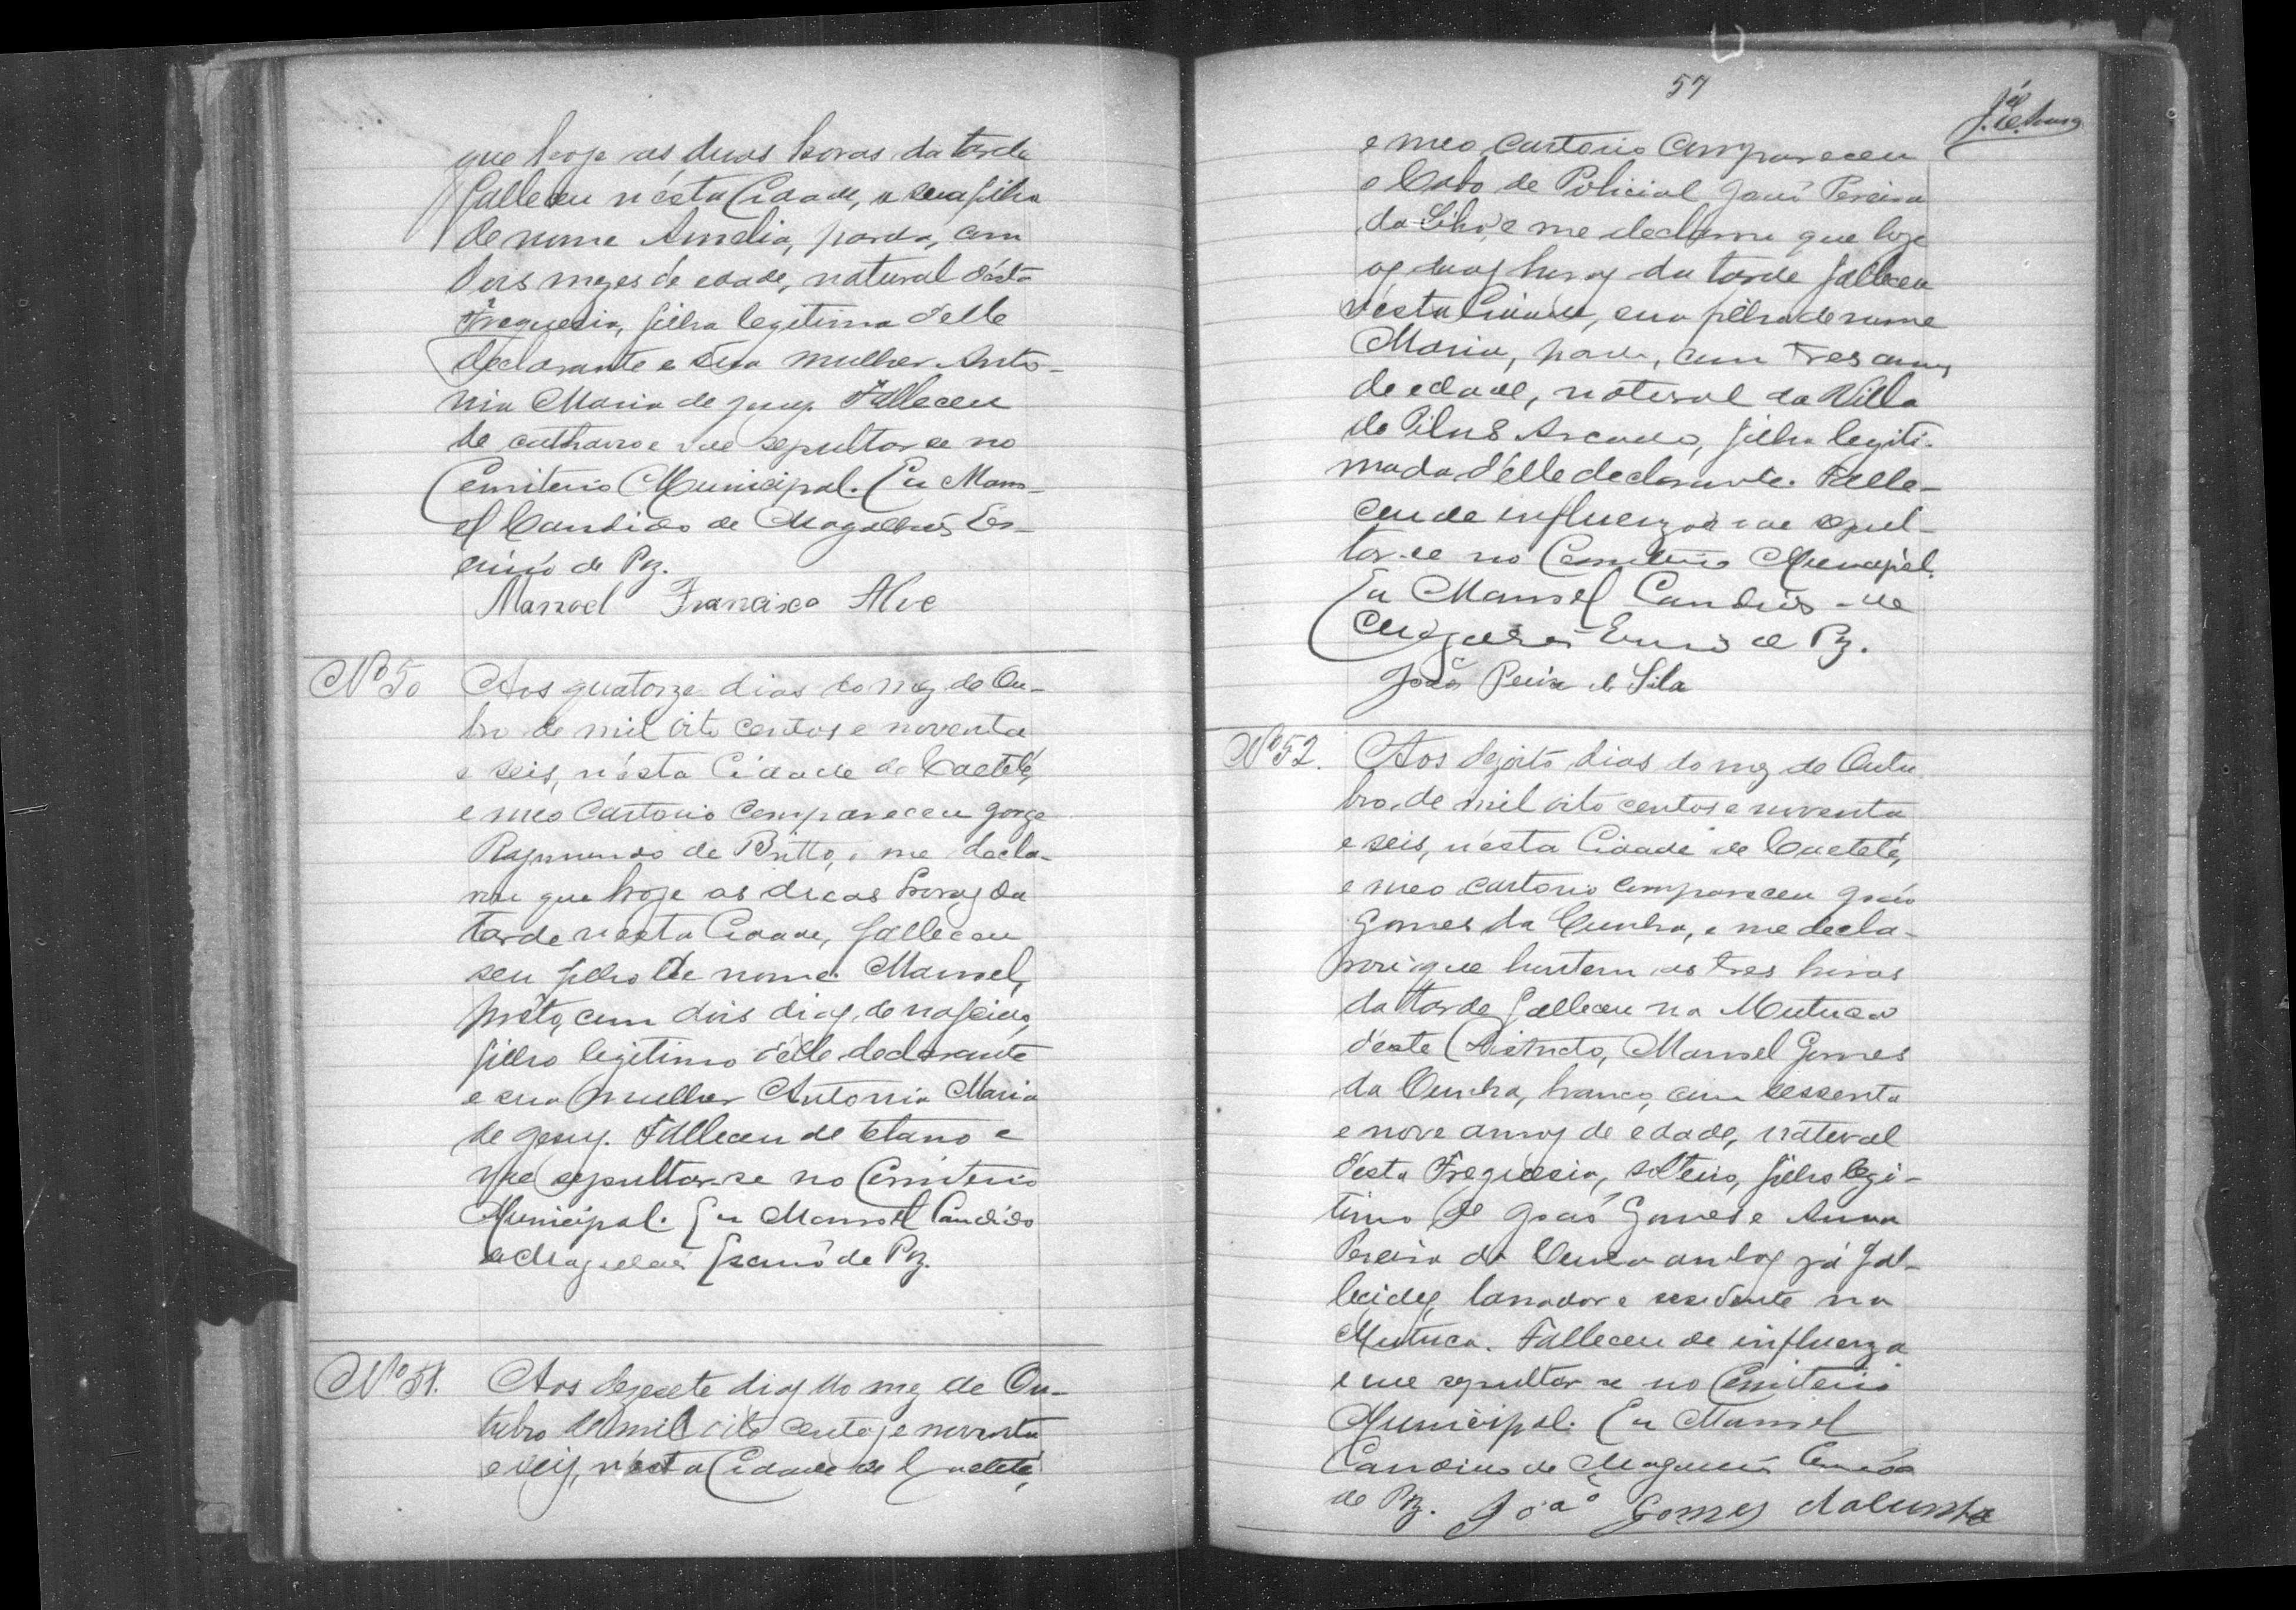 que hoje as duas horas da tarde
falleceu n'esta Cidade, a sua filha
de nome Amelia, parda, com
dois mezes de edade, natural d'esta
Freguesia, filha legitima d'elle
declarante e sua mulher Anto-
nia Maria de Jesus. Falleceu
de catharro e vae sepultar-se no
Cemiterio Municipal. Eu Mano-
el Candido de Magalhães Es-
crivão de Paz.
Manoel Francisco Alve
Nº 50 Aos quatorze dias do mez de Ou-
bro de mil oito centos e noventa
e seis, n'esta Cidade de Caeteté,
e meo Cartorio compareceu Jorge
Raymundo de Britto, e me decla-
rou que hoje as duas horas da
tarde n'esta Cidade, falleceu
seu filho de nome Manoel,
preto, com dois dias de nascido,
filho legitimo d'elle declarante
e sua mulher Antonia Maria
de Jesus. Falleceu de tetano e
vae sepultar-se no Cemiterio
Municipal. Eu Manoel Candido
de Magalhães Escrivão de Paz.
Nº 51. Aos dezesete dias do mez de Ou-
tubro de mil oito centos e noventa
e seis, n'esta Cidade de Caeteté,
57
e meo Cartorio compareceu
o Cabo de Policial João Pereira
da Silva, e me declarou que hoje
as duas horas da tarde falleceu
n'esta Cidade, sua filha de nome
Maria, parda, com tres annos
de edade, natural da Villa
do Pilão Arcado, filha legiti-
mada d'elle declarante. Falle-
ceu de influenza e vae sepul-
tar-se no Cemiterio Municipal.
Eu Manoel Candido de
Magalhães Escrivão de Paz.
João Pereira da Sila
Nº 52. Aos dezoito dias do mez de Outu
bro, de mil oito centos e noventa
e seis, n'esta Cidade de Caeteté,
e meo cartorio compareceu João
Gomes da Cunha, e me decla-
rou que hontem as tres horas
da tarde falleceu na Mutuca
d'este Districto, Manoel Gomes
da Cunha, branco, com sessenta
e nove annos de edade, natural
d'esta Freguesia, solteiro, filho legi-
timo de João Gomes e Anna
Pereira da Cunha ambos já fal-
lecidos, lavrador e residente na
Mutuca. Falleceu de influenza
e vae sepultar se no Cemiterio
Municipal. Eu Manoel
Candido de Magalhães Escrivão
de Paz. João Gomes da Cunha